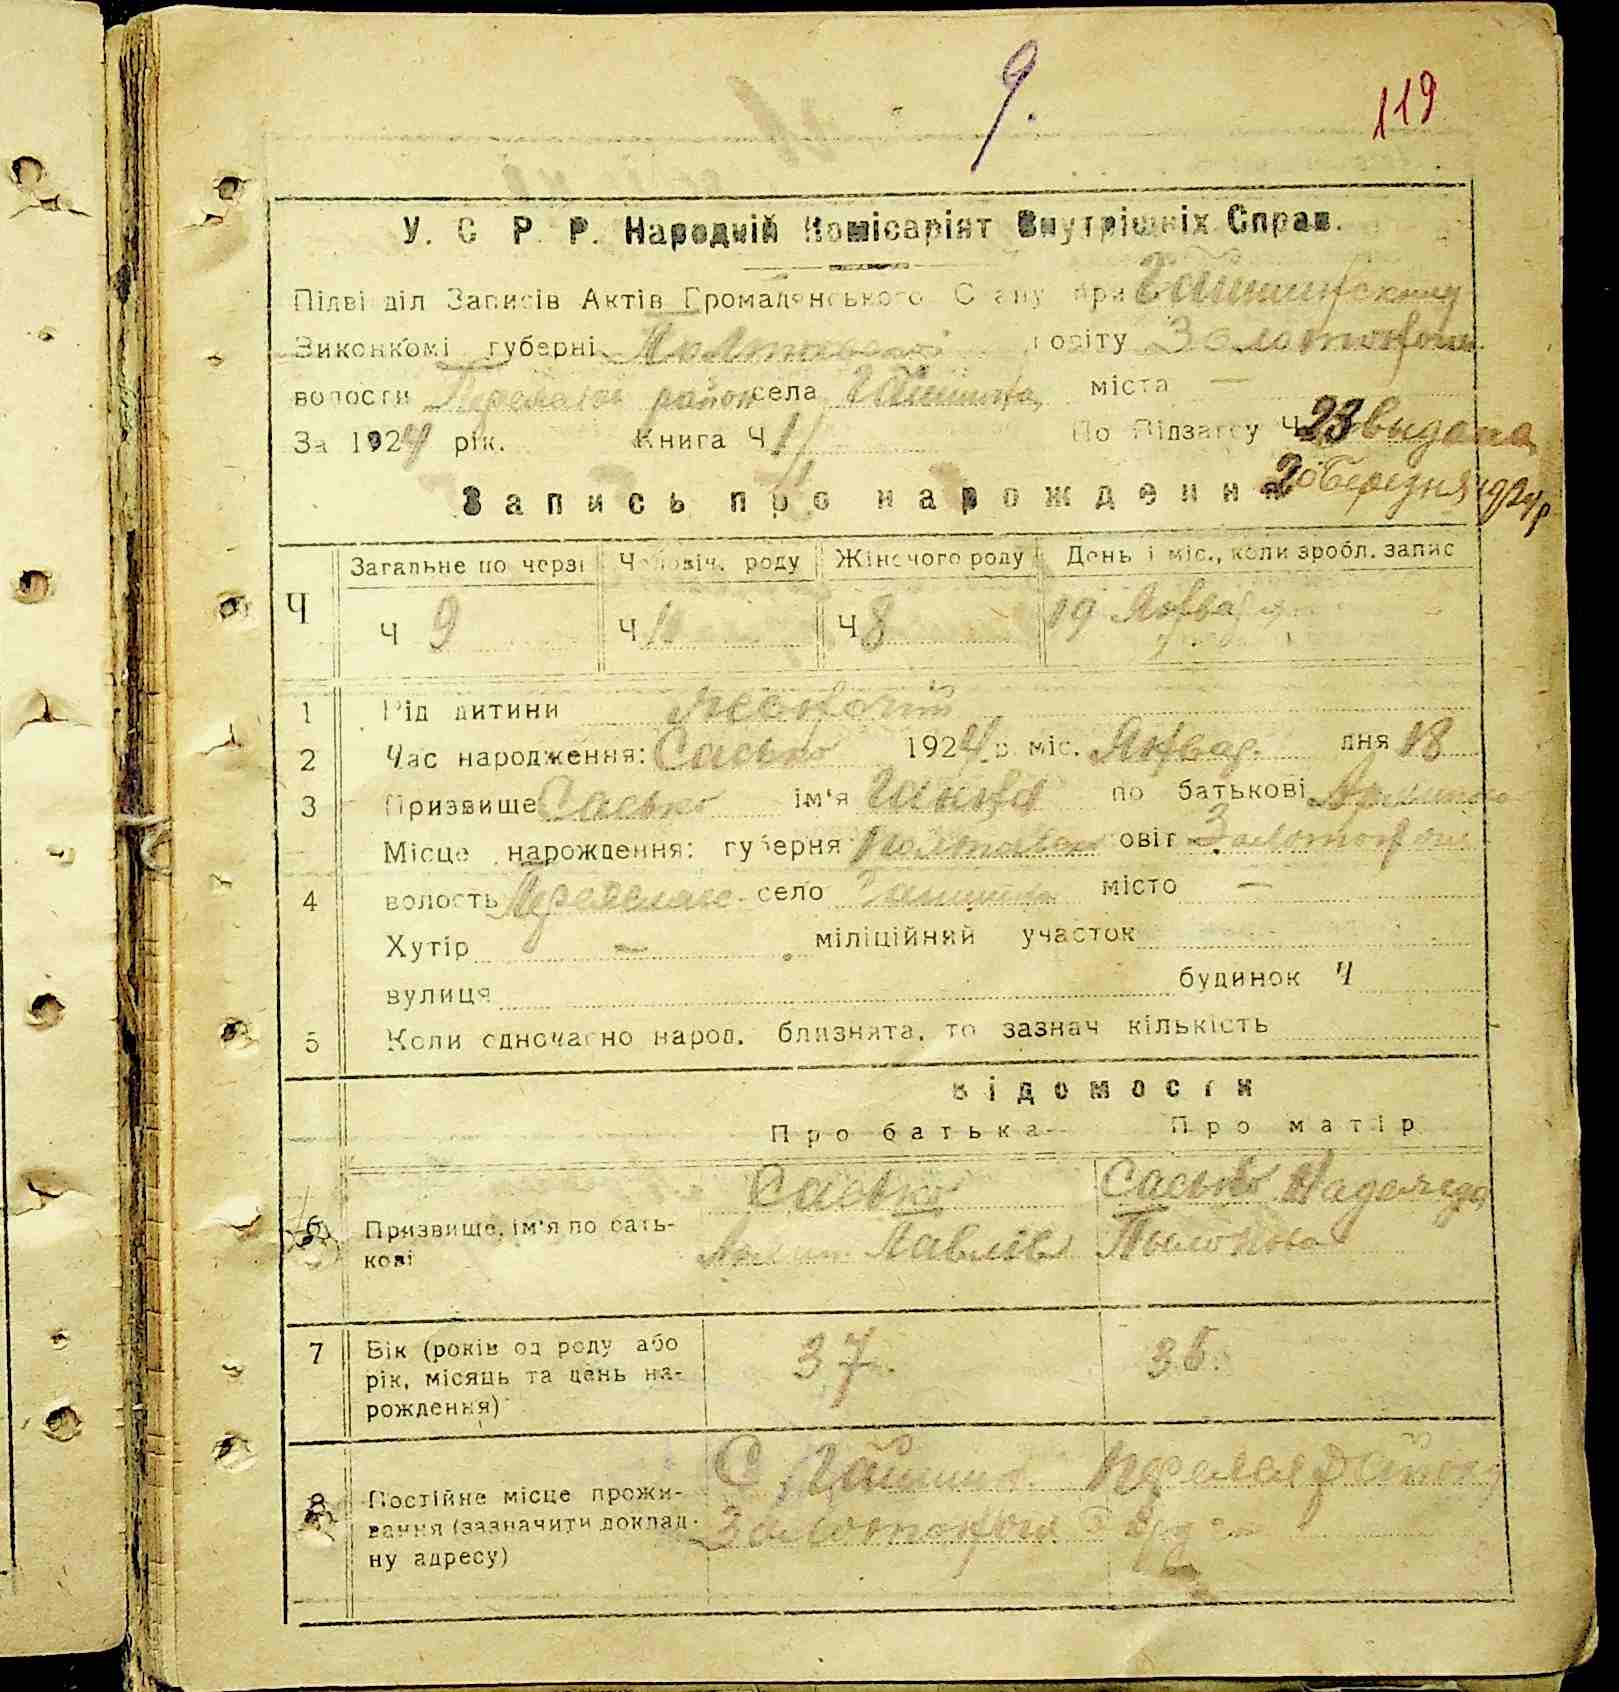 9.
119
У. С Р. Р. Народній Комісаріят Внутрішніх Справ.
Підвідділ Записів Актів Громадянського Стану при
Виконкомі губерні Полтавської повіту Золотонош
волости район села міста —
За 1924 рік. Книга Ч 1 По Підзагсу Ч 23 выдана
20 Березня 1924 р
Запись про народження
Загальне по черзі Чоловіч. роду Жіночого роду День і міс., коли зробл. запис
Ч Ч 9 Ч Ч 8 19 Января
1 Рід дитини женский
2 Час народження: Сасько 1924 р. міс. Январ. дня 18
3 Призвище Сасько ім'я Ганна по батькові
Місце народження: губерня Полтавск повіт Золотонош
4 волость село місто —
Хутір — міліційний участок
вулиця будинок Ч
5 Коли одночасно народ. близнята, то зазнач кількість
Відомости
Про батька Про матір
Сасько Сасько Надежда
6 Призвище, ім'я по бать-
кові Павлов
7 Вік (років од роду або 37 35.
рік, місяць та день на-
рождення)
С
8 Постійне місце прожи-
вання (зазначити доклад- Золотонош
ну адресу)